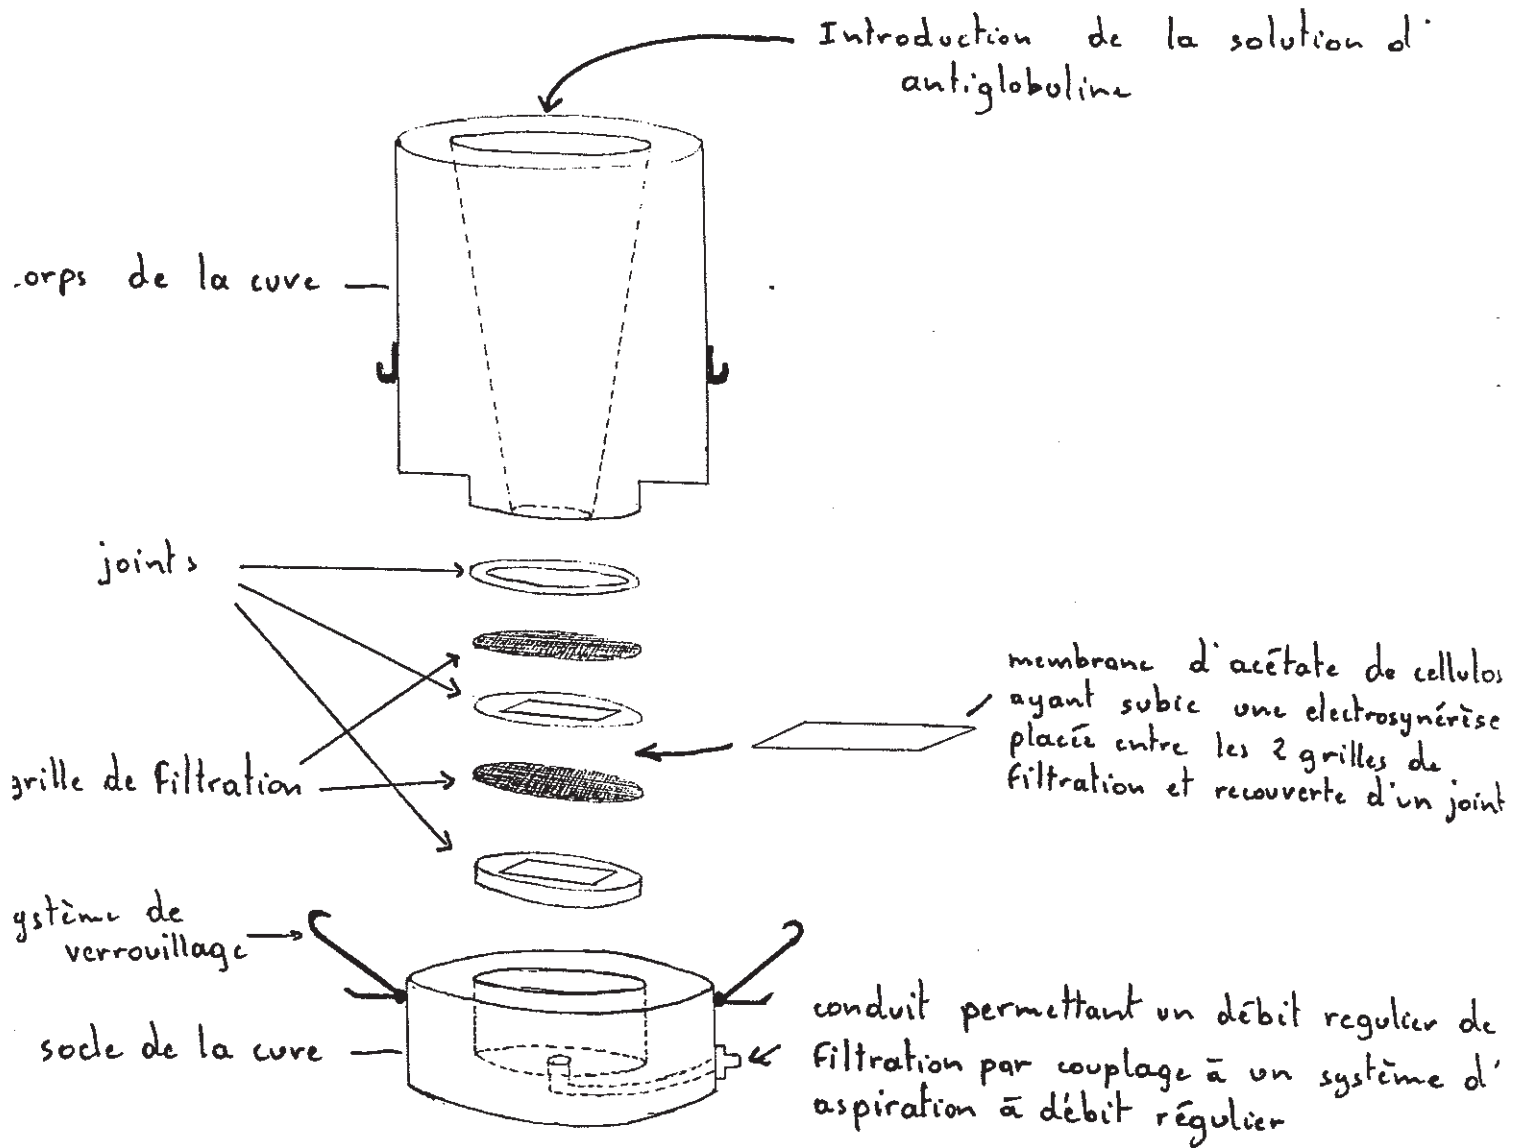 Introduction de la solution d'
antiglobuline
orps de la cuve
joints
membrane d'acétate de cellulos
ayant subie une electrosynérèse
placée entre les 2 grilles de
filtration et recouverte d'un joint
grille de filtration
ystème de
verrouillage
socle de la cuve
conduit permettant un débit regulier de
filtration par couplage à un système d'
aspiration à débit régulier